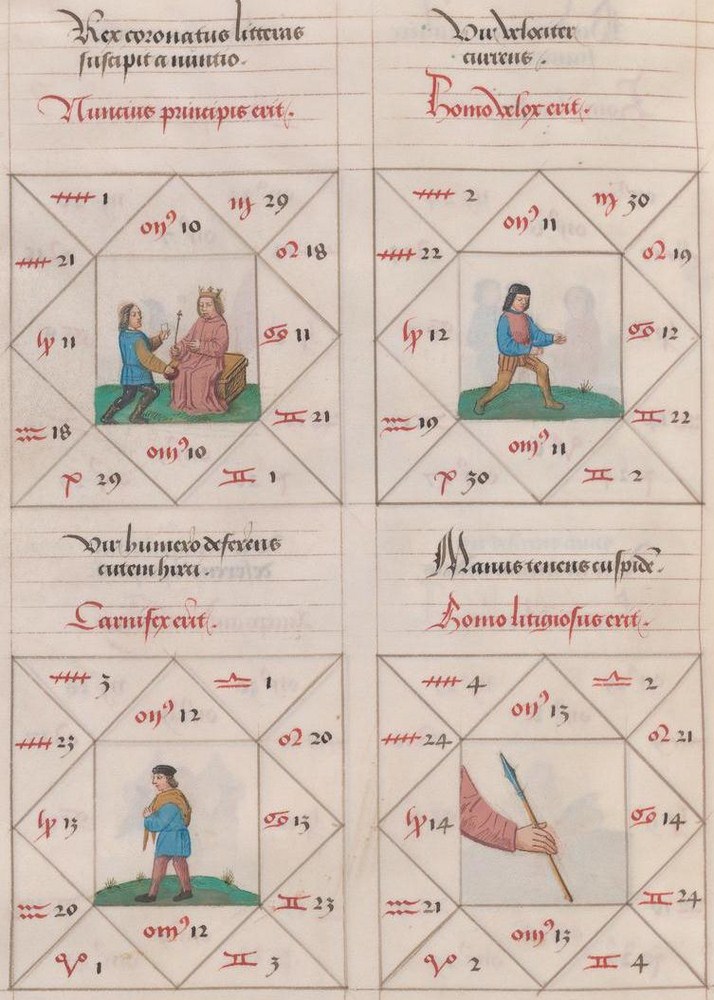 Rex coronatus litteras
suscipit a nuntio.
Nuncius principis erit.
1
29
10
21
18
11
11
18
21
10
29
1
Vir velociter
currens.
Homo velox erit.
2
30
11
22
19
12
12
19
22
11
30
2
Vir humero deferens
cutem hirci.
Carnifex erit.
3
1
12
23
20
13
13
20
23
12
1
3
Manus tenens cuspidē.
Homo litigiosus erit.
4
2
13
24
21
14
14
21
24
13
2
4